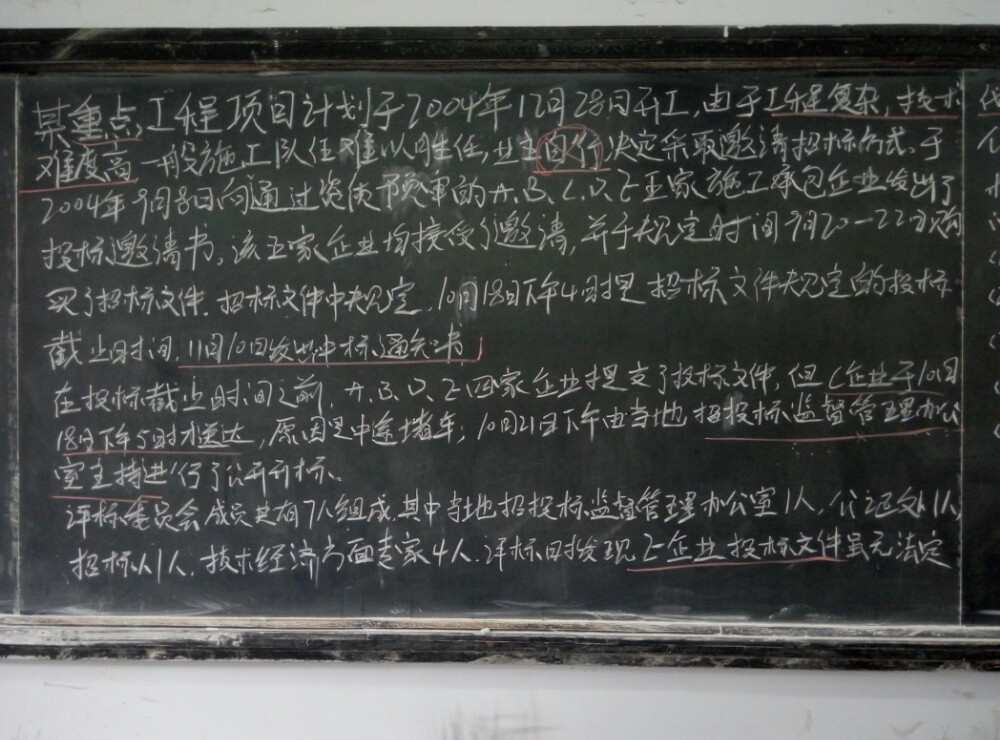 某重点工程项目计划于2004年12月28日开工,由于工程复杂,技术
难度高一般施工队伍难以胜任,业主自行决定采取邀请招标方式。于
2004年9月8日向通过资质预审的A、B、C、D、E五家施工承包企业发出了
投标邀请书。该五家企业均接受了邀请,并于规定时间9月20-22日购
买了招标文件.招标文件中规定,10月18日下午4时是招标文件规定的投标
截止时间,11月10日发出中标通知书
在投标截止时间之前,A、B、D、E四家企业提交了投标文件,但C企业于10月
18日下午5时才送达,原因是中途堵车;10月21日下午由当地招投标监督管理办公
室主持进行了公开开标。
评标委员会成员共有7人组成,其中当地招投标监督管理办公室1人,公证处1人,
招标人1人,技术经济方面专家4人.评标时发现E企业投标文件虽无法定